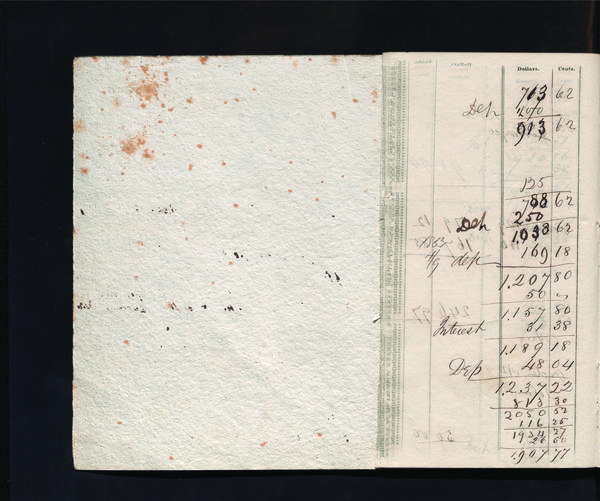 Dollars. Cents.
713 62
Dep 200
913 62
125
788 62
Dep 250
1.038 62
1863
4/9 dep 169 18
1.207 80
50 "
1.157 80
Interest 31 38
1.189 18
Dep 48 04
1.237 22
813 30
2050 52
116 25
1934 27
26 50
1.907 77